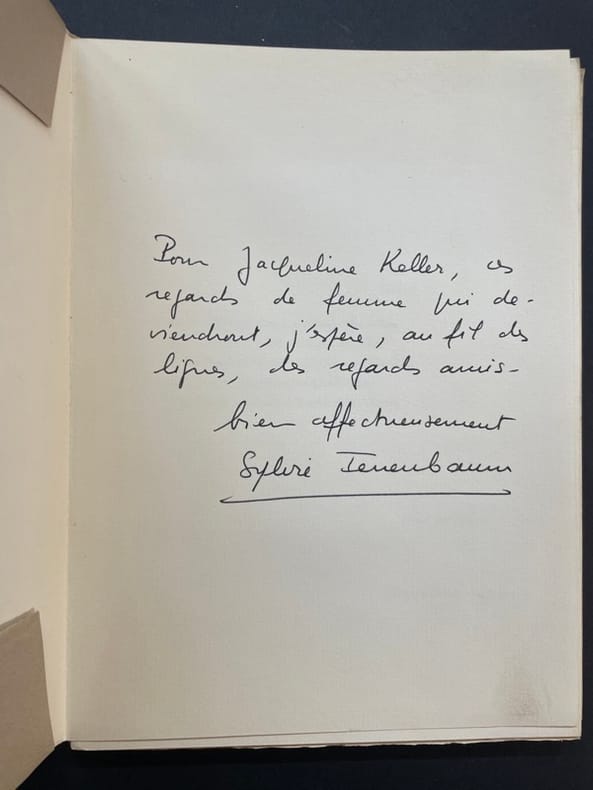 Pour Jacqueline Keller, ces
regards de femme qui de-
viendront, j'espère, au fil des
lignes, des regards amis-
bien affectueusement
Sylvie Tenenbaum